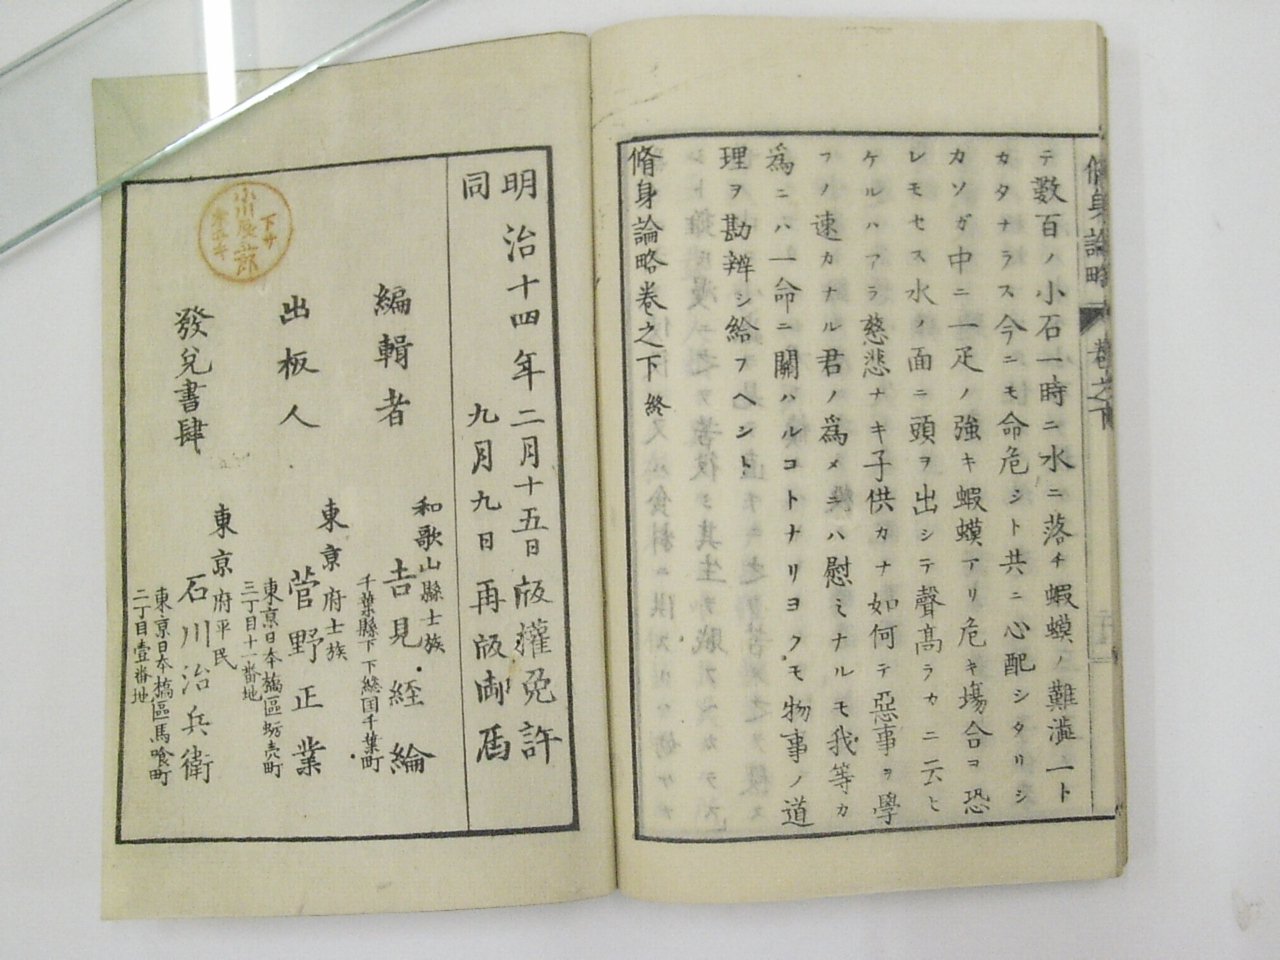 脩身論略 巻之下
テ數百ノ小石一時ニ水ニ落チ蝦蟆ノ難澁一ト
カタナラス今ニモ命危シト共ニ心配シタリシ
カソガ中ニ一疋ノ強キ蝦蟆アリ危キ場合ヨ恐
レモセス水ノ面ニ頭ヲ出シテ聲高ラカニ云ヒ
ケルハアラ慈悲ナキ子供カナ如何テ惡事ヲ學
フノ速カナル君ノ為メニハ慰ミナルモ我等カ
為ニハ一命ニ關ハルコトナリヨクモ物事ノ道
理ヲ勘辨シ給フヘシト
脩身論略巻之下 終
明治十四年二月十五日版權免許
同 九月九日再版御届
編輯者
和歌山縣士族
吉見経綸
千葉縣下下総国千葉町
出板人
東京府士族
菅野正業
東京日本橋區蛎売町
三丁目十一番地
發兌書肆
東京府平民
石川治兵衛
東京日本橋區馬喰町
二丁目壹番地
下サ